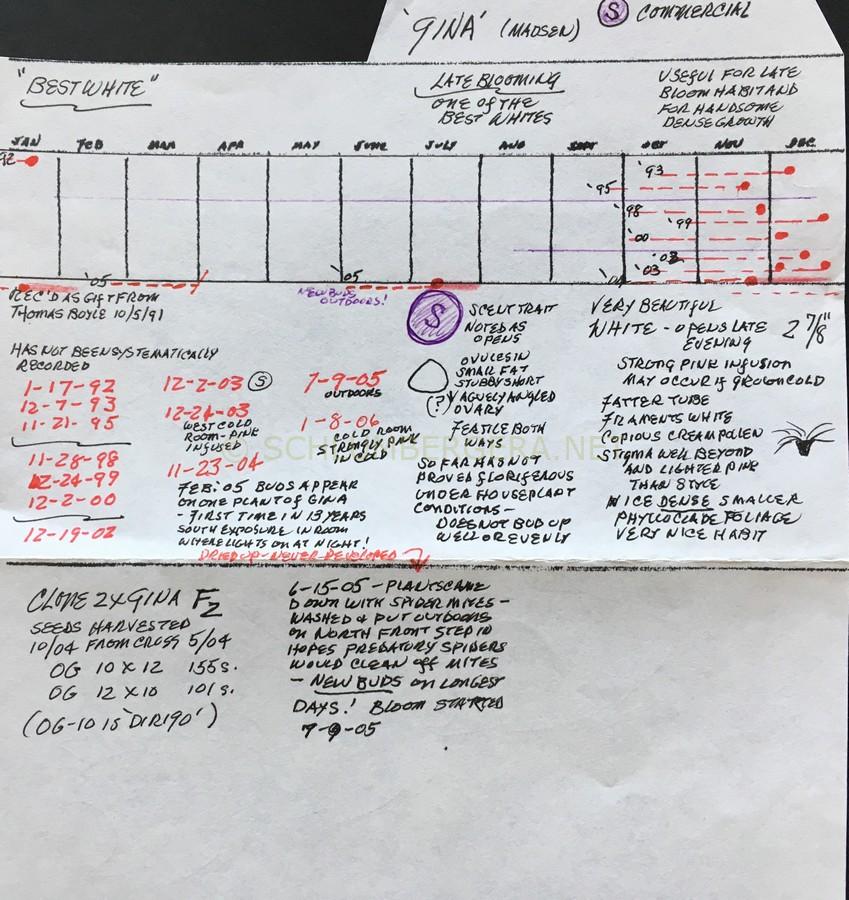 'GINA' (MADSEN) S COMMERCIAL
"BEST WHITE"
LATE BLOOMING
ONE OF THE
BEST WHITES
USEFUL FOR LATE
BLOOM HABIT AND
FOR HANDSOME
DENSE GROWTH
JAN FEB MAR APR MAY JUNE JULY AUG SEPT OCT NOV DEC
92
'93
'95
'98
'99
'00
'02
'03
'05
'05
NEW BUDS
OUTDOORS!
REC'D AS GIFT FROM
THOMAS BOYLE 10/5/91
HAS NOT BEEN SYSTEMATICALLY
RECORDED
1-17-92
12-7-93
11-21-95
11-28-98
12-24-99
12-2-00
12-19-02
12-2-03 S
12-24-03
WEST COLD
ROOM-PINK
INFUSED
11-23-04
FEB '05 BUDS APPEAR
ON ONE PLANT OF GINA
- FIRST TIME IN 13 YEARS
SOUTH EXPOSURE IN ROOM
WHERE LIGHTS ON AT NIGHT!
DRIED UP-NEVER DEVELOPED
7-9-05
OUTDOORS
1-8-06
COLD ROOM
STRONGLY PINK
IN COLD
S
SCENT TRAIT
NOTED AS
OPENS
OVULES IN
SMALL FAT
STUBBY SHORT
(?) VAGUELY ANGLED
OVARY
FERTILE BOTH
WAYS
SO FAR HAS NOT
PROVED FLORIFEROUS
UNDER HOUSEPLANT
CONDITIONS-
DOES NOT BUD UP
WELL OR EVENLY
VERY BEAUTIFUL
WHITE - OPENS LATE
EVENING
2 7/8"
STRONG PINK INFUSION
MAY OCCUR IF GROWN COLD
FATTER TUBE
FILAMENTS WHITE
COPIOUS CREAM POLLEN
STIGMA WELL BEYOND
AND LIGHTER PINK
THAN STYLE
NICE DENSE SMALLER
PHYLLOCLADE FOLIAGE
VERY NICE HABIT
© SCHLUMBERGERA.NET
CLONE 2 X GINA F2
SEEDS HARVESTED
10/04 FROM CROSS 5/04
OG 10 X 12 155 S.
OG 12 X 10 101 S.
(OG-10 IS 'DIR190')
6-15-05 - PLANTS CAME
DOWN WITH SPIDER MITES -
WASHED & PUT OUTDOORS
ON NORTH FRONT STEP IN
HOPES PREDATORY SPIDERS
WOULD CLEAN OFF MITES
- NEW BUDS ON LONGEST
DAYS! BLOOM STARTED
7-9-05